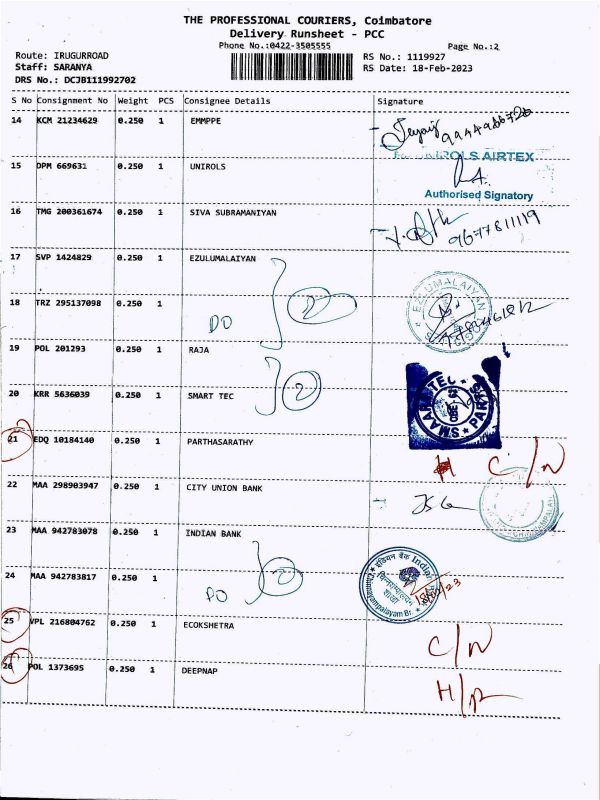 THE PROFESSIONAL COURIERS, Coimbatore
Delivery Runsheet - PCC
Phone No.:0422-3505555
Page No.:2
Route: IRUGURROAD
RS No.: 1119927
Staff: SARANYA
RS Date: 18-Feb-2023
DRS No.: DCJB111992702
S No Consignment No Weight PCS Consignee Details Signature
14 KCM 21234629 0.250 1 EMMPPE
15 DPM 669631 0.250 1 UNIROLS
ROLS AIRTEX
Authorised Signatory
16 TMG 200361674 0.250 1 SIVA SUBRAMANIYAN
9677811119
17 SVP 1424829 0.250 1 EZULUMALAIYAN
18 TRZ 295137098 0.250 1 DO 2
19 POL 201293 0.250 1 RAJA
20 KRR 5636039 0.250 1 SMART TEC 2
SMAARTTEC PARTS
21 EDQ 10184140 0.250 1 PARTHASARATHY C/N
22 MAA 298903947 0.250 1 CITY UNION BANK
23 MAA 942783078 0.250 1 INDIAN BANK
24 MAA 942783817 0.250 1 DO 2
इंडियन बैंक Indian
18/02/23
25 VPL 216804762 0.250 1 ECOKSHETRA C/N
26 POL 1373695 0.250 1 DEEPNAP H/R